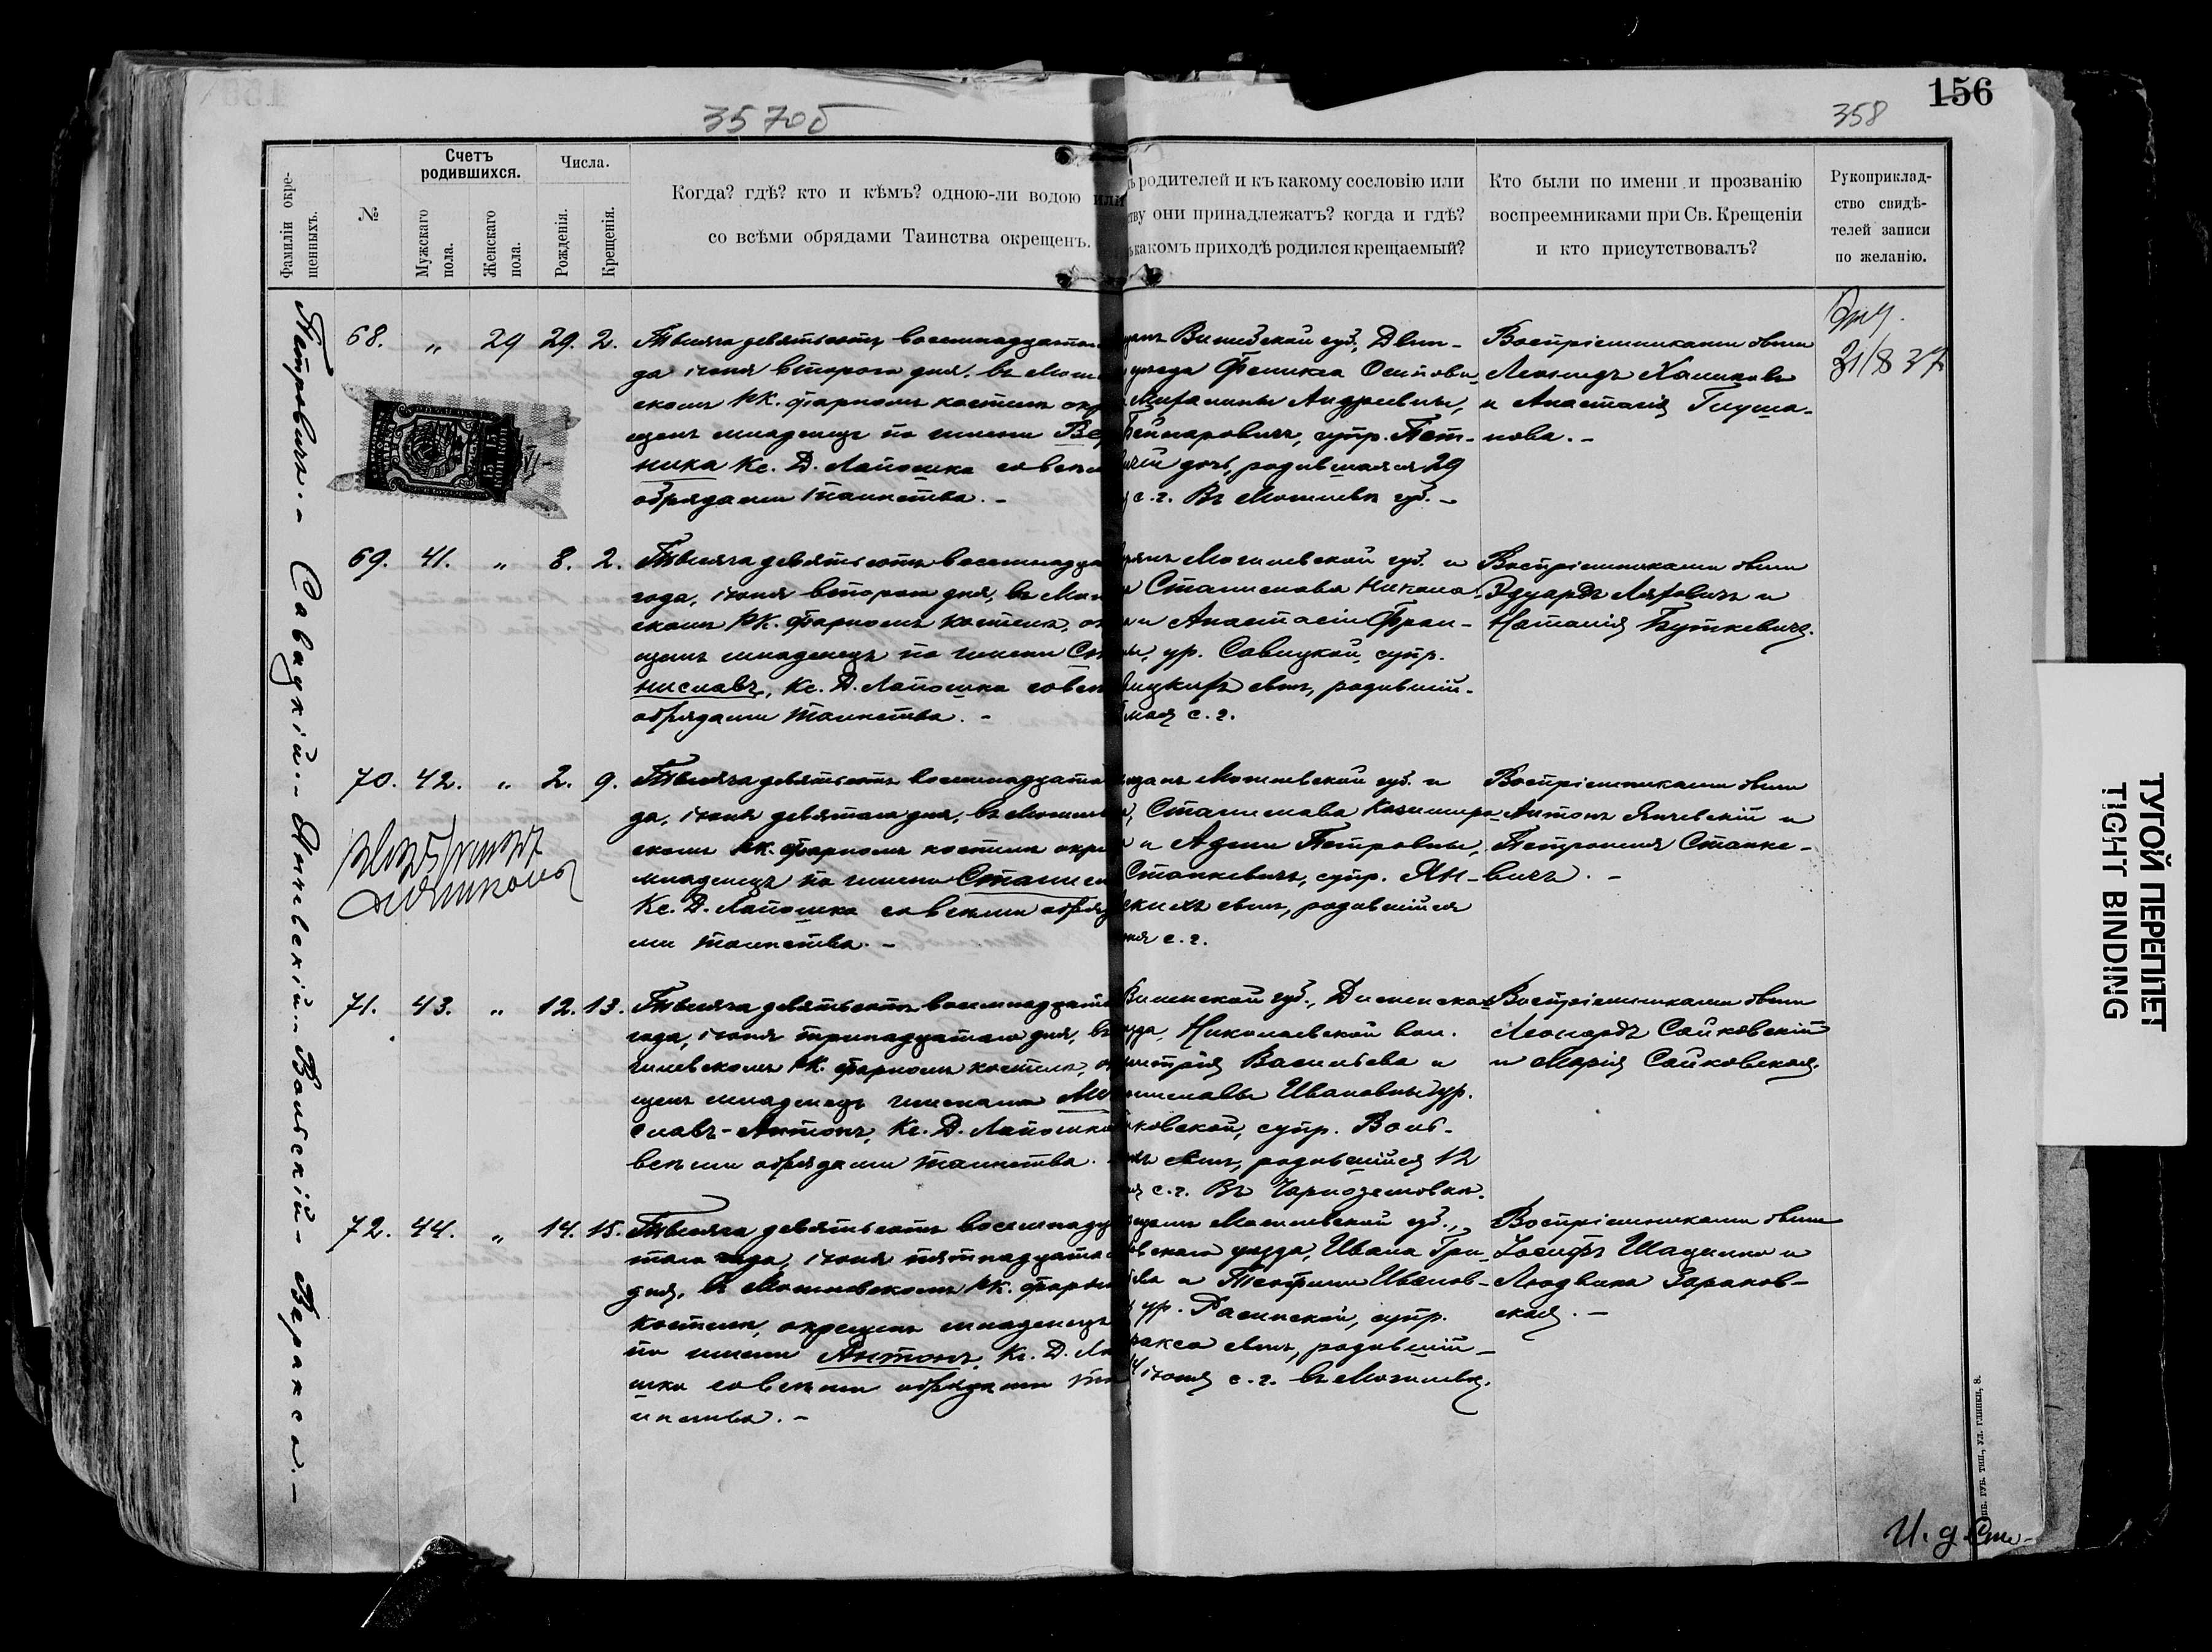 156
357об
358
Фамиліи окре-
щенныхъ.
№
Счетъ
родившихся.
Мужскаго
пола.
Женскаго
пола.
Числа.
Рожденія.
Крещенія.
Когда? гдѣ? кто и кѣмъ? одною-ли водою или
со всѣми обрядами Таинства окрещенъ.
родителей и къ какому сословію или
ству они принадлежатъ? когда и гдѣ?
какомъ приходѣ родился крещаемый?
Кто были по имени и прозванію
воспреемниками при Св. Крещеніи
и кто присутствовалъ?
Рукоприклад-
ство свидѣ-
телей записи
по желанію.
Петровичъ.-
68. " 29 29. 2.
Тысяча девятьсотъ восемнадцата
да іюня второго дня, въ Моги
скомъ РК. фарномъ костелѣ окр
щенъ младенецъ по имени Вер
ника Кс. Д. Лапошка со всѣми
обрядами таинства. -
щанъ Витебской губ., Двин-
уѣзда Феликса Осипова
Андреевны,
супр. Пет-
дочь, родившаяся 29
с. г. Въ Могилевѣ губ. -
Воспріемниками были
Леонидъ Халиковъ
и Анастасія Глуша-
кова. -
31/8 37
Савицкій.-
69. 41. " 8. 2.
Тысяча девятьсотъ восемнадца
года, іюня второго дня, въ Моги
скомъ РК. фарномъ костелѣ, ок
щенъ младенецъ по имени Ста
ниславъ, Кс. Д. Лапошка со всѣм
обрядами таинства. -
Могилевской губ. и
Станислава
и Анастасіи Фран-
ур. Савицкой, супр.
вицкихъ сынъ, родившій-
мая с. г.
Воспріемниками были
Эдуардъ Ляховичъ и
Наталія Буткевичъ.
Янчевскій.-
70. 42. " 2. 9.
Тысяча девятьсотъ восемнадцата
да, іюня девятаго дня, въ Могилев
скомъ РК. фарномъ костелѣ окре
младенецъ по имени Станисл
Кс. Д. Лапошка со всѣми обряд
ми таинства. -
щанъ Могилевской губ. и
Станислава Казимира
и Адели Петровны,
Станкевичъ, супр. Ян-
скихъ сынъ, родившійся
с. г.
Воспріемниками были
Антонъ Янчевскій и
Петронеля Станке-
вичъ. -
Вольскій.-
71. 43. " 12. 13.
Тысяча девятьсотъ восемнадцата
года, іюня тринадцатаго дня, въ
гилевскомъ РК. фарномъ костелѣ, ок
щенъ младенецъ именами Ме
славъ-Антонъ, Кс. Д. Лапошко
всѣми обрядами таинства.
Виленской губ., Дисненска
Николаевской вол.
митрія Васильева и
Ивановны ур.
ковской, супр. Воль-
сынъ, родившійся 12
с. г. Въ
Воспріемниками были
Леонардъ Сайковскій
и Марія Сайковская.
Веракса.-
72. 44. " 14. 15.
Тысяча девятьсотъ восемнадца
таго года, іюня пятнадцатаго
дня, въ Могилевскомъ РК. фарном
костелѣ, окрещенъ младенецъ
по имени Антонъ, Кс. Д. Ла
шка со всѣми обрядами та
инства. -
щанъ Могилевской губ.,
скаго уѣзда, Ивана Гри-
и Теофили Иванов-
ур. Расинской, супр.
ракса сынъ, родившій-
14 іюня с. г. въ Могилевѣ.
Воспріемниками были
Іосифъ Шаденко и
Людвика Зараков-
ская. -
ГУБ. ТИП., УЛ. ГЛИНКИ, 8.
И. д.
ТУГОЙ ПЕРЕПЛЕТ
TIGHT BINDING